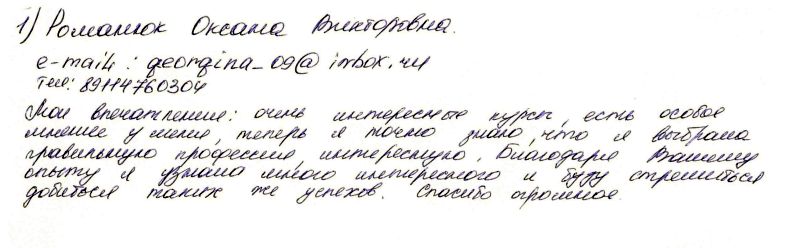 1) Романюк Оксана Викторовна.
e-mail: georgina_09@inbox.ru
Тел: 89114760304
Мои впечатления: очень интересные курсы, есть особое
мнение у меня, теперь я точно знаю, что я выбрала
правильную профессию, интересную. Благодаря Вашему
опыту я узнала много интересного и буду стремиться
добиться таких же успехов. Спасибо огромное.